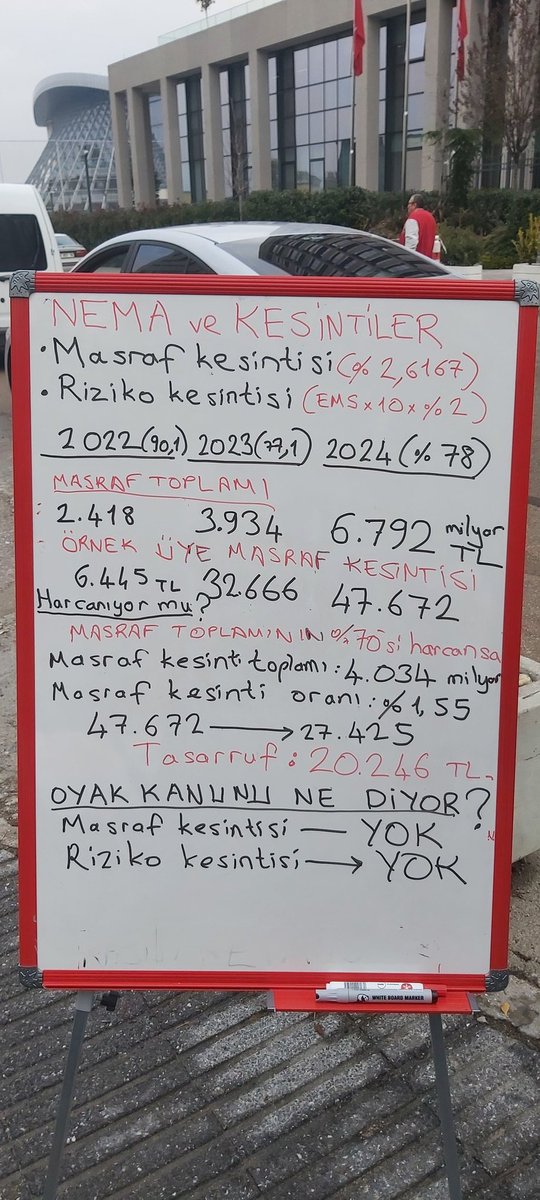 NEMA ve KESİNTİLER
• Masraf kesintisi (% 2,6167)
• Riziko kesintisi (EMS x 10 x % 2)
2022 (90,1) 2023 (77,1) 2024 (% 78)
MASRAF TOPLAMI
2.418 3.934 6.792 milyor TL
- ÖRNEK ÜYE MASRAF KESİNTİSİ
6.445 TL 32.666 47.672
Harcanıyor mu?
MASRAF TOPLAMININ %70'si harcansa
Masraf kesinti toplamı: 4.034 milyor
Masraf kesinti oranı: % 1,55
47.672 → 27.425
Tasarruf: 20.246 TL-
OYAK KANUNU NE DİYOR?
Masraf kesintisi — YOK
Riziko kesintisi → YOK
WHITE BOARD MARKER